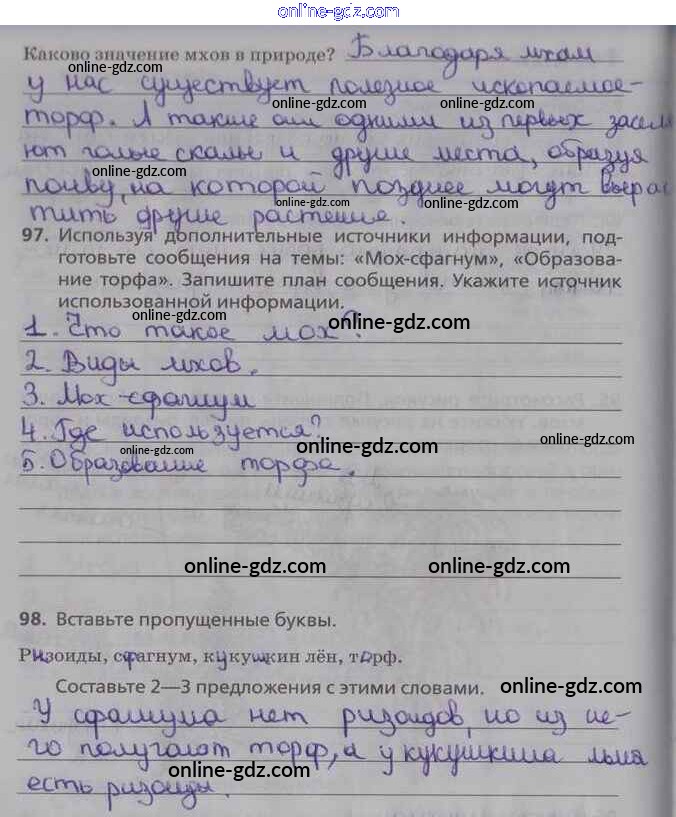 online-gdz.com
Каково значение мхов в природе? Благодаря мхам
online-gdz.com
у нас существует полезное ископаемое-
online-gdz.com online-gdz.com
торф. А также они одними из первых засел
online-gdz.com
яют голые скалы и другие места, образуя
online-gdz.com
почву, на которой позднее могут вырас
online-gdz.com
тить другие растения.
97. Используя дополнительные источники информации, под-
готовьте сообщения на темы: «Мох-сфагнум», «Образова-
ние торфа». Запишите план сообщения. Укажите источник
использованной информации.
1. Что такое мох?
online-gdz.com
2. Виды мхов.
3. Мох-сфагнум
4. Где используется?
online-gdz.com online-gdz.com
5. Образование торфа.
online-gdz.com online-gdz.com
98. Вставьте пропущенные буквы.
Ризоиды, сфагнум, кукушкин лён, торф.
Составьте 2—3 предложения с этими словами.
online-gdz.com
У сфагнума нет ризоидов, но из не-
го получают торф, а у кукушкина льна
online-gdz.com
есть ризоиды.